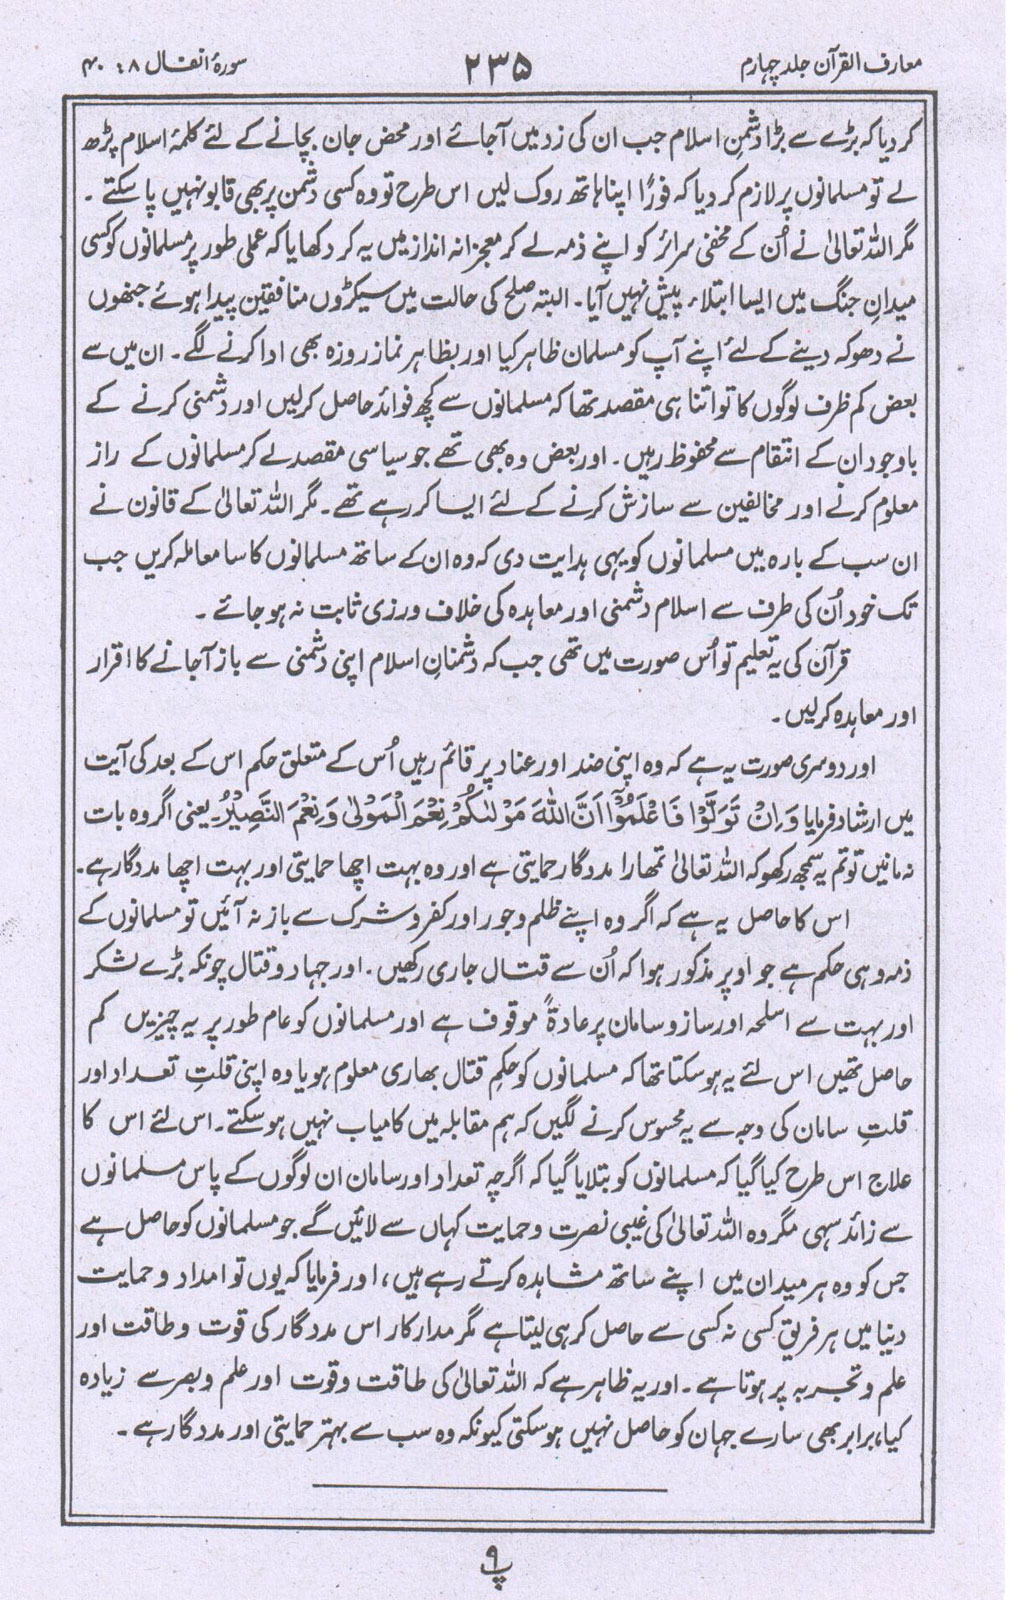 معارف القرآن جلد چہارم
۲۳۵
سورۂ انفال ۸: ۴۰
کر دیا کہ بڑے سے بڑا دشمنِ اسلام جب ان کی زد میں آجائے اور محض جان بچانے کے لئے کلمۂ اسلام پڑھ
لے تو مسلمانوں پر لازم کر دیا کہ فورًا اپنا ہاتھ روک لیں اس طرح تو وہ کسی دشمن پر بھی قابو نہیں پا سکتے ۔
مگر اللہ تعالیٰ نے اُن کے مخفی سرائر کو اپنے ذمہ لے کر معجزانہ انداز میں یہ کر دکھایا کہ عملی طور پر مسلمانوں کو کسی
میدانِ جنگ میں ایسا ابتلاء پیش نہیں آیا ۔ البتہ صلح کی حالت میں سیکڑوں منافقین پیدا ہوئے جنھوں
نے دھوکہ دینے کے لئے اپنے آپ کو مسلمان ظاہر کیا اور بظاہر نماز روزہ بھی ادا کرنے لگے ۔ ان میں سے
بعض کم ظرف لوگوں کا تو اتنا ہی مقصد تھا کہ مسلمانوں سے کچھ فوائد حاصل کرلیں اور دشمنی کرنے کے
باوجود ان کے انتقام سے محفوظ رہیں ۔ اور بعض وہ بھی تھے جو سیاسی مقصد لے کر مسلمانوں کے راز
معلوم کرنے اور مخالفین سے سازش کرنے کے لئے ایسا کر رہے تھے ۔ مگر اللہ تعالیٰ کے قانون نے
ان سب کے بارہ میں مسلمانوں کو یہی ہدایت دی کہ وہ ان کے ساتھ مسلمانوں کا سا معاملہ کریں جب
تک خود اُن کی طرف سے اسلام دشمنی اور معاہدہ کی خلاف ورزی ثابت نہ ہو جائے ۔
قرآن کی یہ تعلیم تو اُس صورت میں تھی جب کہ دشمنانِ اسلام اپنی دشمنی سے باز آجانے کا اقرار
اور معاہدہ کرلیں ۔
اور دوسری صورت یہ ہے کہ وہ اپنی ضد اور عناد پر قائم رہیں اُس کے متعلق حکم اس کے بعد کی آیت
میں ارشاد فرمایا وَاِنْ تَوَلَّوْا فَاعْلَمُوْٓا اَنَّ اللّٰهَ مَوْلٰىكُمْ نِعْمَ الْمَوْلٰى وَنِعْمَ النَّصِيْرُ۔ یعنی اگر وہ بات
نہ مانیں تو تم یہ سمجھ رکھو کہ اللہ تعالیٰ تمھارا مددگار حمایتی ہے اور وہ بہت اچھا حمایتی اور بہت اچھا مددگار ہے۔
اس کا حاصل یہ ہے کہ اگر وہ اپنے ظلم و جور اور کفر و شرک سے باز نہ آئیں تو مسلمانوں کے
ذمہ وہی حکم ہے جو اوپر مذکور ہوا کہ اُن سے قتال جاری رکھیں ۔ اور جہاد و قتال چونکہ بڑے لشکر
اور بہت سے اسلحہ اور ساز و سامان پر عادۃً موقوف ہے اور مسلمانوں کو عام طور پر یہ چیزیں کم
حاصل تھیں اس لئے یہ ہو سکتا تھا کہ مسلمانوں کو حکمِ قتال بھاری معلوم ہو یا وہ اپنی قلتِ تعداد اور
قلتِ سامان کی وجہ سے یہ محسوس کرنے لگیں کہ ہم مقابلہ میں کامیاب نہیں ہو سکتے ۔ اس لئے اس کا
علاج اس طرح کیا گیا کہ مسلمانوں کو بتلایا گیا کہ اگرچہ تعداد اور سامان ان لوگوں کے پاس مسلمانوں
سے زائد سہی مگر وہ اللہ تعالیٰ کی غیبی نصرت و حمایت کہاں سے لائیں گے جو مسلمانوں کو حاصل ہے
جس کو وہ ہر میدان میں اپنے ساتھ مشاہدہ کرتے رہے ہیں ، اور فرمایا کہ یوں تو امداد و حمایت
دنیا میں ہر فریق کسی نہ کسی سے حاصل کر ہی لیتا ہے مگر مدار کار اس مددگار کی قوت و طاقت اور
علم و تجربہ پر ہوتا ہے ۔ اور یہ ظاہر ہے کہ اللہ تعالیٰ کی طاقت و قوت اور علم و بصر سے زیادہ
کیا، برابر بھی سارے جہان کو حاصل نہیں ہو سکتی کیونکہ وہ سب سے بہتر حمایتی اور مددگار ہے ۔
پ۹